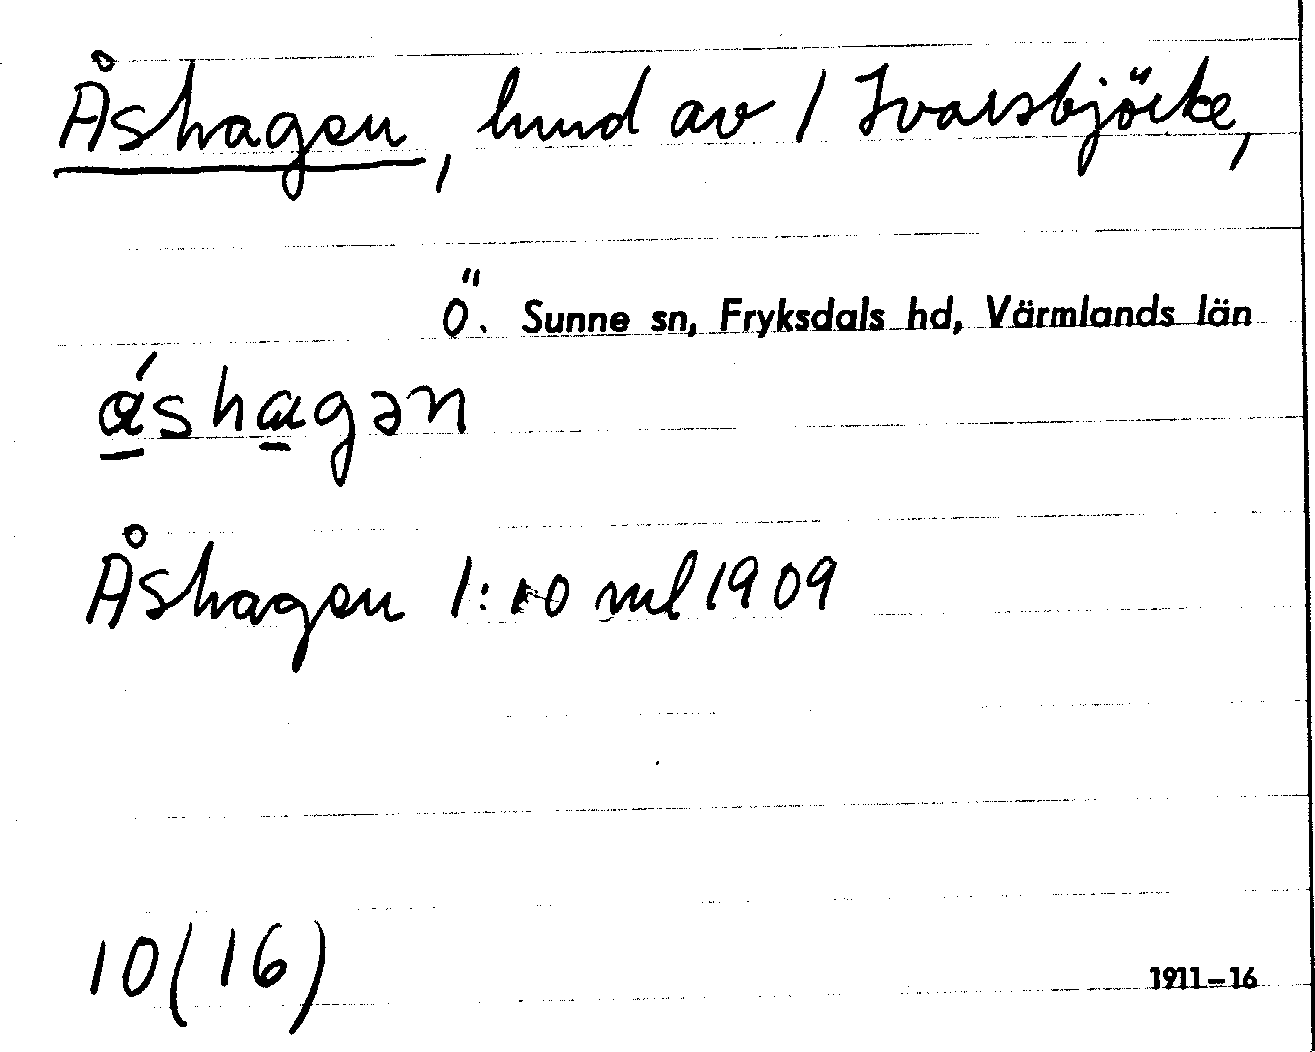 Åshagen, hmd av 1 Ivarsbjörke,
Ö. Sunne sn, Fryksdals hd, Värmlands län
åshagən
Åshagen 1:10 ml 1909
10(16)
1911–16